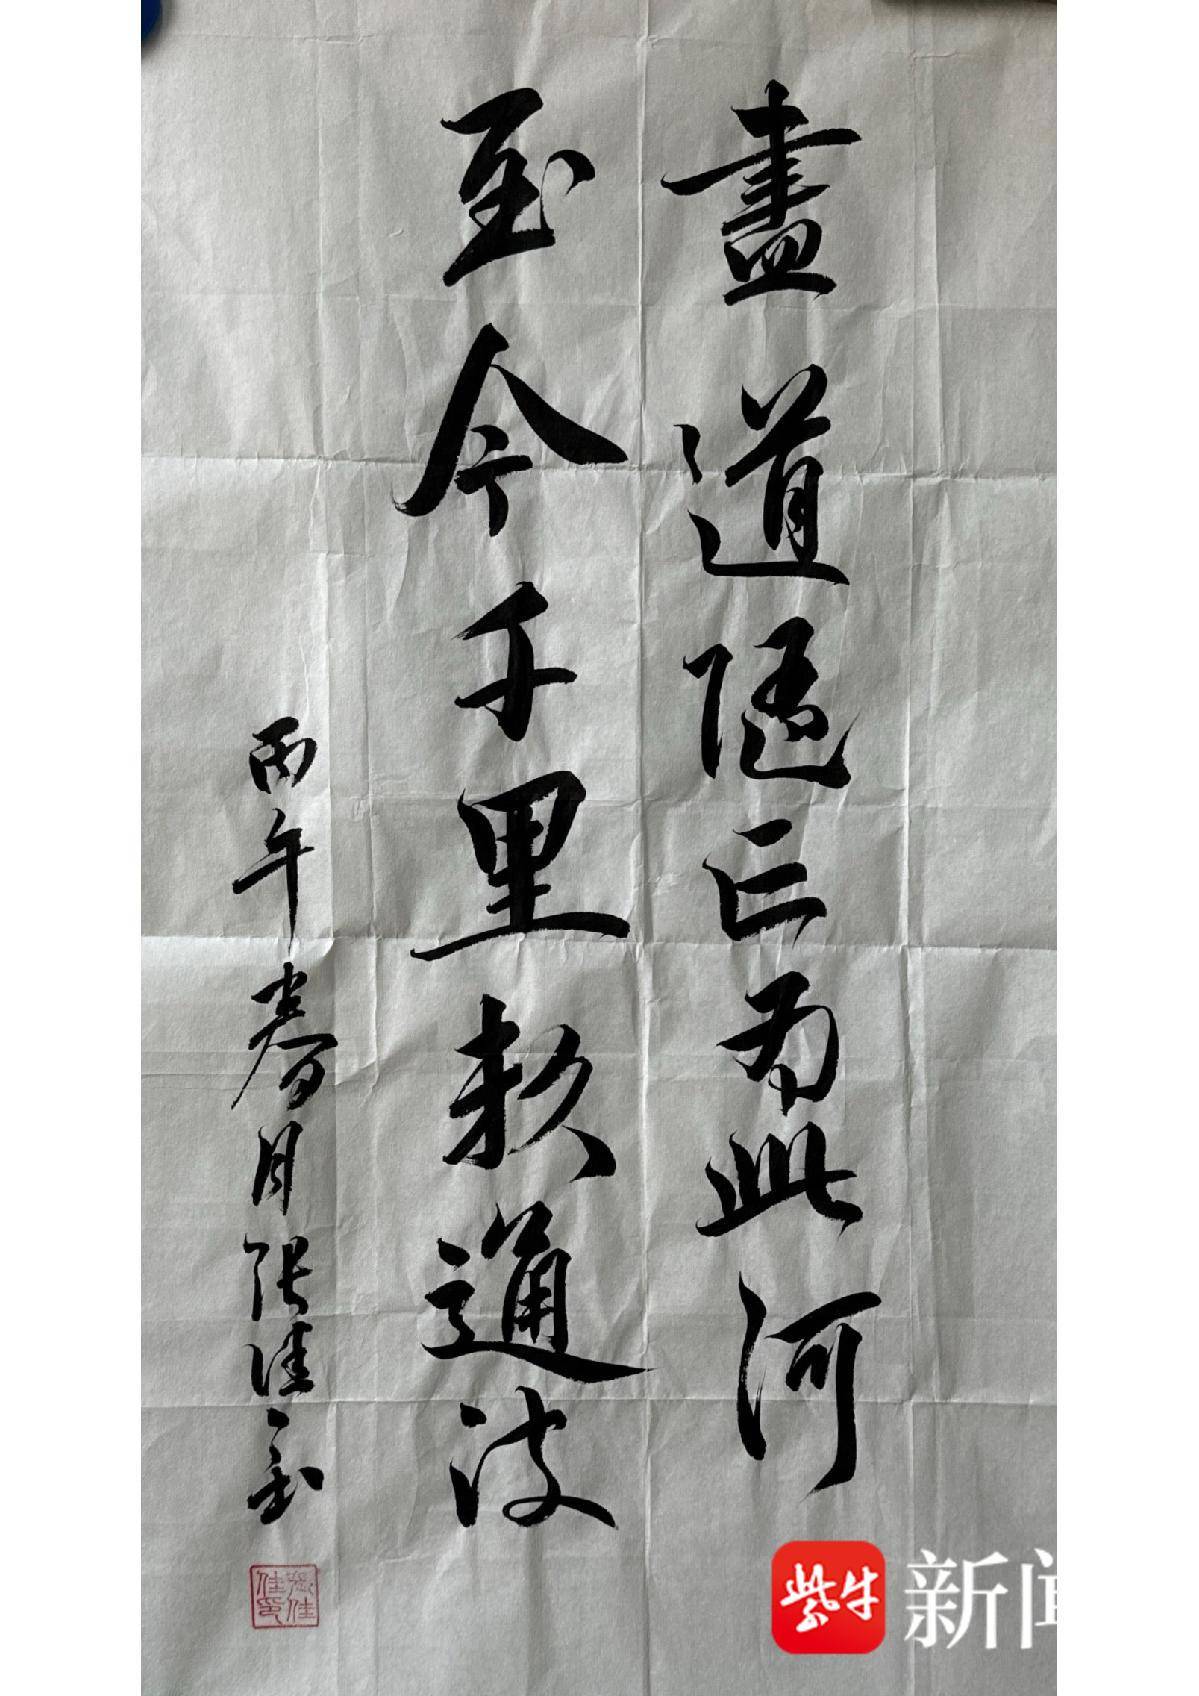 盡道隋亡為此河
至今千里賴通波
丙午春月張佳
張佳佳印
紫牛 新闻